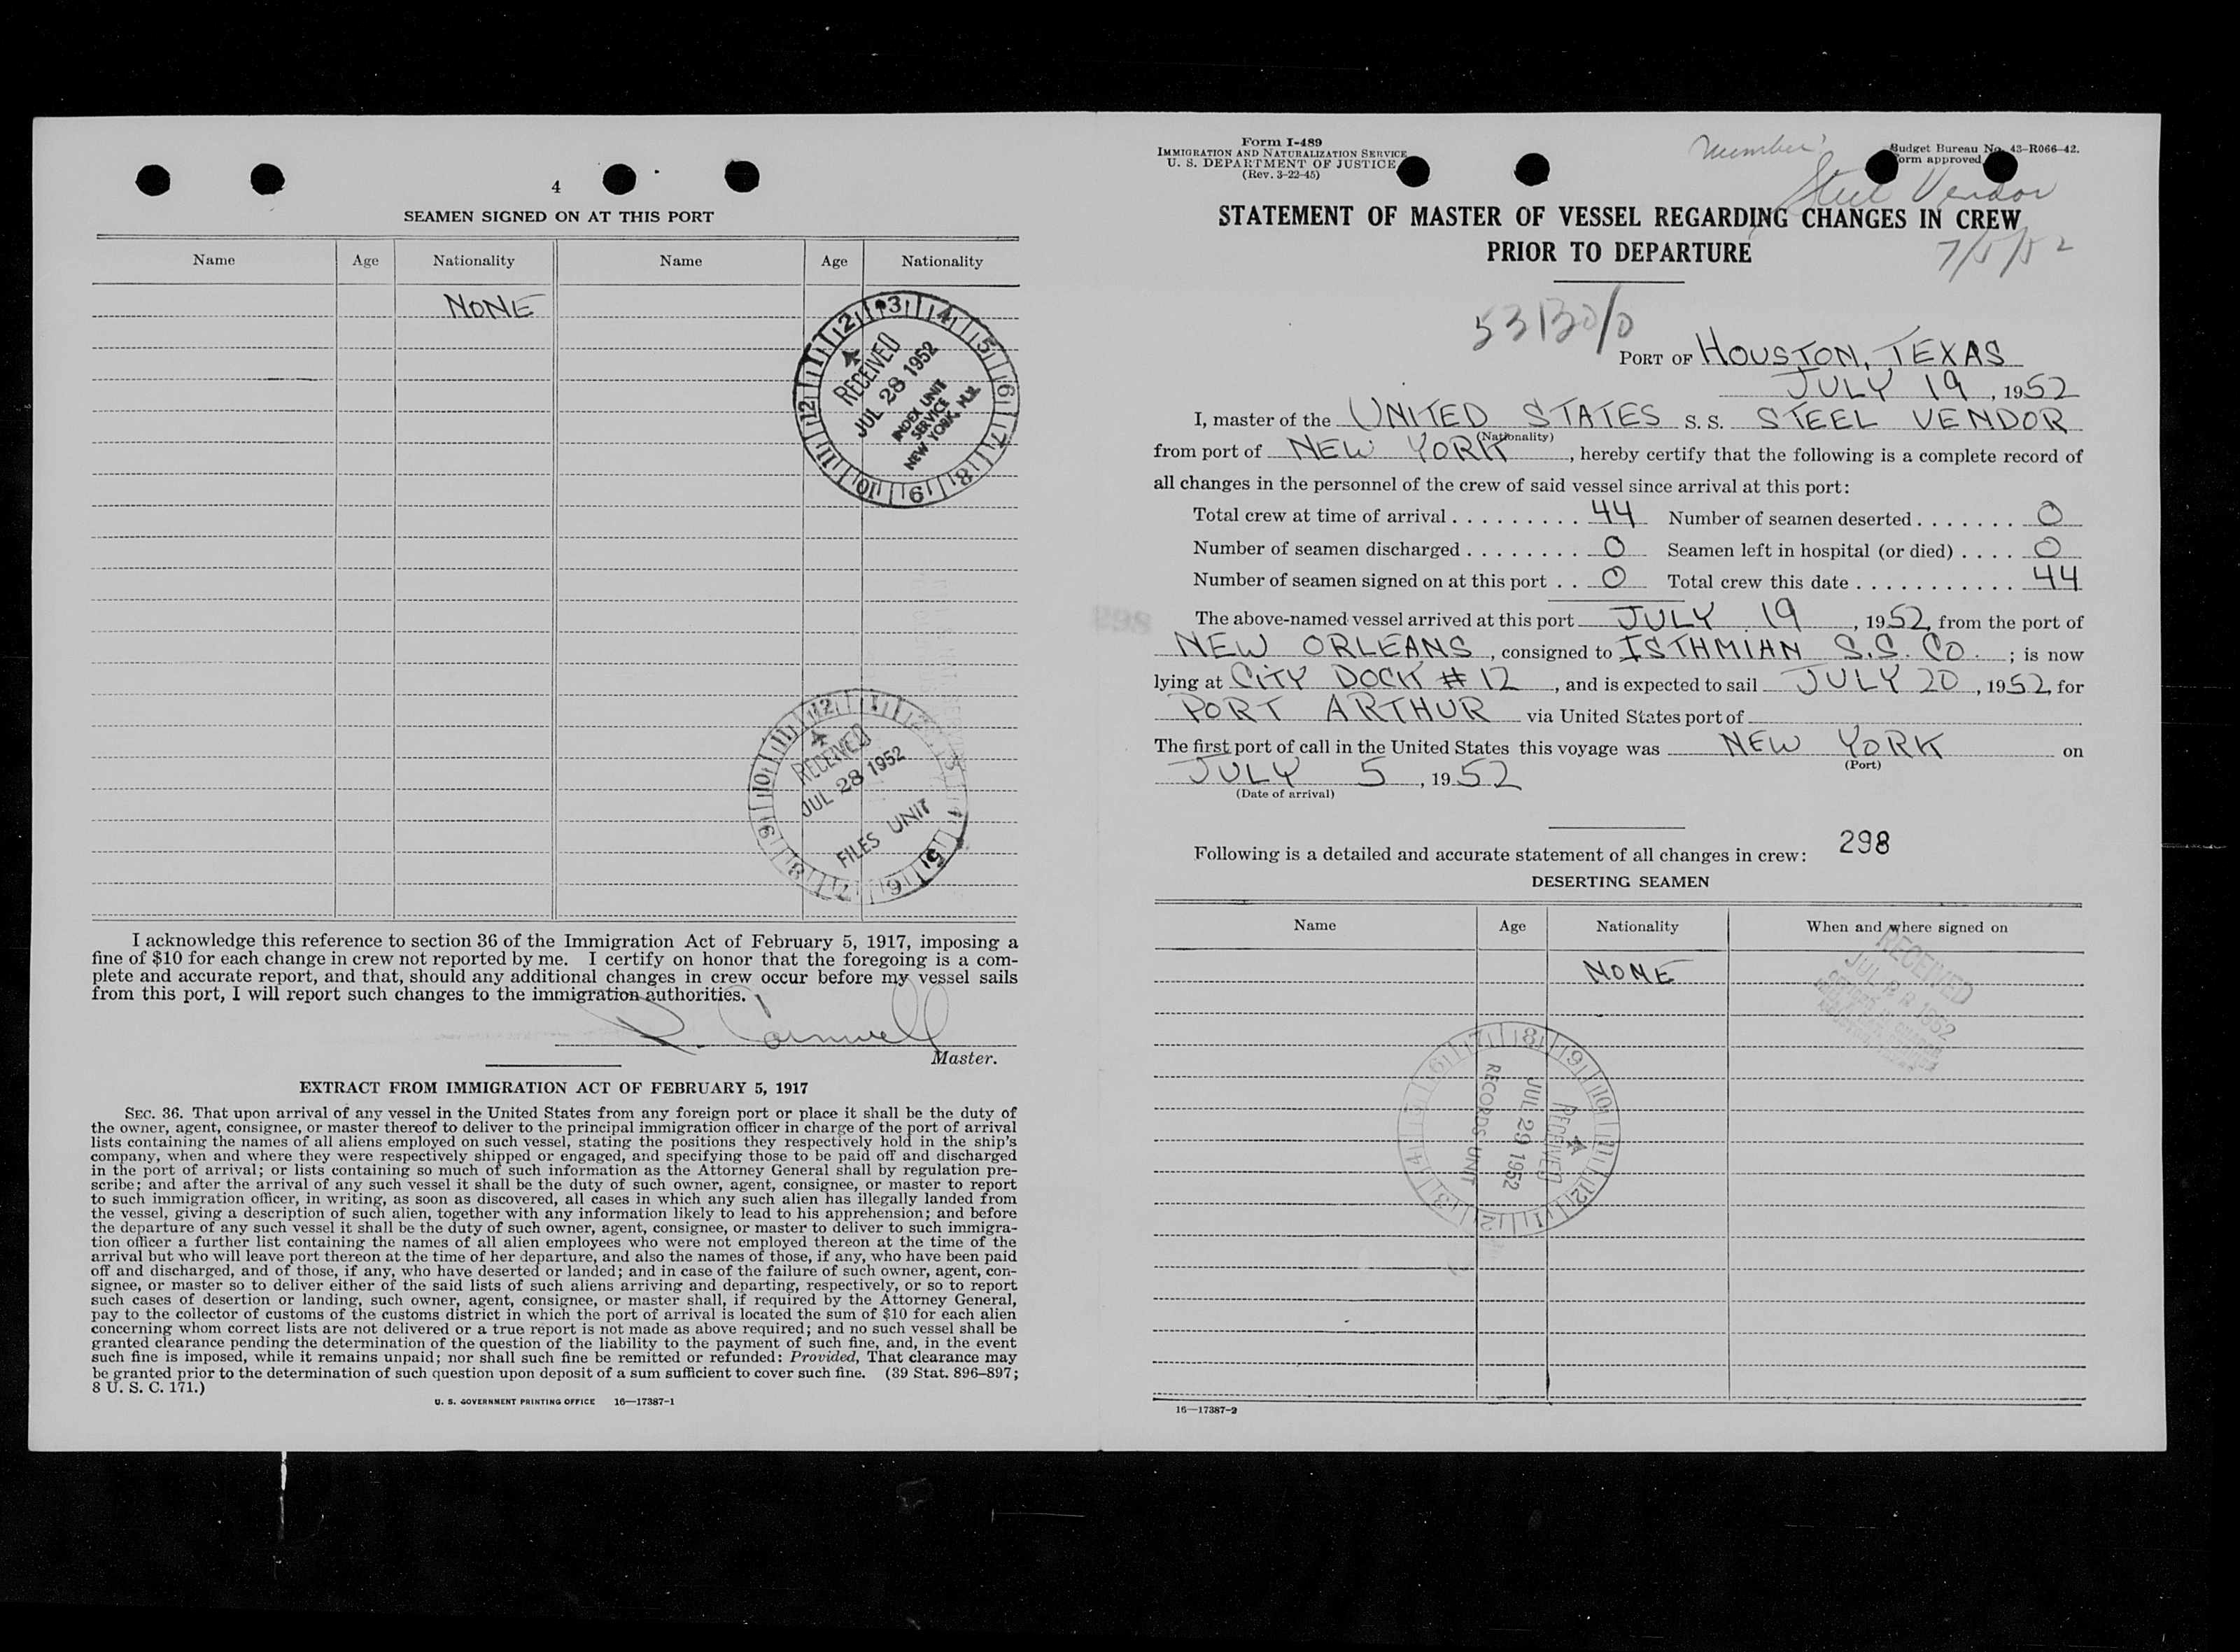 4
SEAMEN SIGNED ON AT THIS PORT
Name Age Nationality Name Age Nationality
NONE
RECEIVED
JUL 28 1952
INDEX UNIT
SERVICE
NEW YORK, N.Y.
RECEIVED
JUL 28 1952
FILES UNIT
I acknowledge this reference to section 36 of the Immigration Act of February 5, 1917, imposing a
fine of $10 for each change in crew not reported by me. I certify on honor that the foregoing is a com-
plete and accurate report, and that, should any additional changes in crew occur before my vessel sails
from this port, I will report such changes to the immigration authorities.
Master.
EXTRACT FROM IMMIGRATION ACT OF FEBRUARY 5, 1917
SEC. 36. That upon arrival of any vessel in the United States from any foreign port or place it shall be the duty of
the owner, agent, consignee, or master thereof to deliver to the principal immigration officer in charge of the port of arrival
lists containing the names of all aliens employed on such vessel, stating the positions they respectively hold in the ship's
company, when and where they were respectively shipped or engaged, and specifying those to be paid off and discharged
in the port of arrival; or lists containing so much of such information as the Attorney General shall by regulation pre-
scribe; and after the arrival of any such vessel it shall be the duty of such owner, agent, consignee, or master to report
to such immigration officer, in writing, as soon as discovered, all cases in which any such alien has illegally landed from
the vessel, giving a description of such alien, together with any information likely to lead to his apprehension; and before
the departure of any such vessel it shall be the duty of such owner, agent, consignee, or master to deliver to such immigra-
tion officer a further list containing the names of all alien employees who were not employed thereon at the time of the
arrival but who will leave port thereon at the time of her departure, and also the names of those, if any, who have been paid
off and discharged, and of those, if any, who have deserted or landed; and in case of the failure of such owner, agent, con-
signee, or master so to deliver either of the said lists of such aliens arriving and departing, respectively, or so to report
such cases of desertion or landing, such owner, agent, consignee, or master shall, if required by the Attorney General,
pay to the collector of customs of the customs district in which the port of arrival is located the sum of $10 for each alien
concerning whom correct lists are not delivered or a true report is not made as above required; and no such vessel shall be
granted clearance pending the determination of the question of the liability to the payment of such fine, and, in the event
such fine is imposed, while it remains unpaid; nor shall such fine be remitted or refunded: Provided, That clearance may
be granted prior to the determination of such question upon deposit of a sum sufficient to cover such fine. (39 Stat. 896–897;
8 U. S. C. 171.)
U. S. GOVERNMENT PRINTING OFFICE 16—17387-1
Form I-489
IMMIGRATION AND NATURALIZATION SERVICE
U. S. DEPARTMENT OF JUSTICE
(Rev. 3-22-45)
Budget Bureau No. 43-R066-42.
Form approved
Steel Vendor
7/5/52
STATEMENT OF MASTER OF VESSEL REGARDING CHANGES IN CREW
PRIOR TO DEPARTURE
PORT OF HOUSTON, TEXAS
JULY 19, 1952
I, master of the UNITED STATES S. S. STEEL VENDOR
(Nationality)
from port of NEW YORK, hereby certify that the following is a complete record of
all changes in the personnel of the crew of said vessel since arrival at this port:
Total crew at time of arrival . . . . . . . . . 44 Number of seamen deserted . . . . . . . 0
Number of seamen discharged . . . . . . . . 0 Seamen left in hospital (or died) . . . . 0
Number of seamen signed on at this port . . 0 Total crew this date . . . . . . . . . . . . 44
The above-named vessel arrived at this port JULY 19, 1952, from the port of
NEW ORLEANS, consigned to ISTHMIAN S.S. CO.; is now
lying at CITY DOCK # 12, and is expected to sail JULY 20, 1952, for
PORT ARTHUR via United States port of
The first port of call in the United States this voyage was NEW YORK on
(Port)
JULY 5, 1952
(Date of arrival)
Following is a detailed and accurate statement of all changes in crew: 298
DESERTING SEAMEN
Name Age Nationality When and where signed on
NONE
RECEIVED
JUL 28 1952
RECEIVED
JUL 29 1952
RECORDS UNIT
16—17387-2